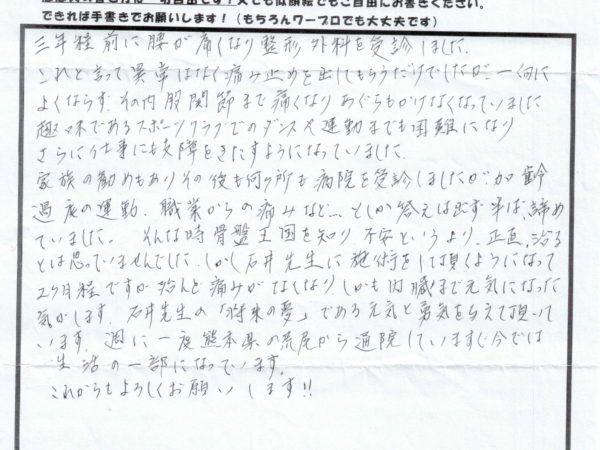 できれば手書きでお願いします！（もちろんワープロでも大丈夫です）
三年程前に腰が痛くなり整形外科を受診しました。
これと言って異常はなく痛み止めを出してもらうだけでしたが、一向に
よくならず、その内股関節まで痛くなりあぐらもかけなくなっていました。
趣味であるスポーツクラブでのダンスや運動までも困難になり
さらに仕事にも支障をきたすようになっていました。
家族の勧めもありその後も何ヶ所も病院を受診しましたが、加齢
過度の運動、職業からの痛みなど…としか答えは出ず半ば、諦め
ていました。そんな時骨盤王国を知り不安というより、正直、治る
とは思っていませんでした。しかし石井先生に施術をして頂くようになって
2ヶ月程ですが殆んど痛みがなくなりしかも内臓まで元気になった
気がします。石井先生の「将来の夢」である元気と勇気を与えて頂いて
います。週に一度熊本県の荒尾から通院していますが今では
生活の一部になっています。
これからもよろしくお願いします!!